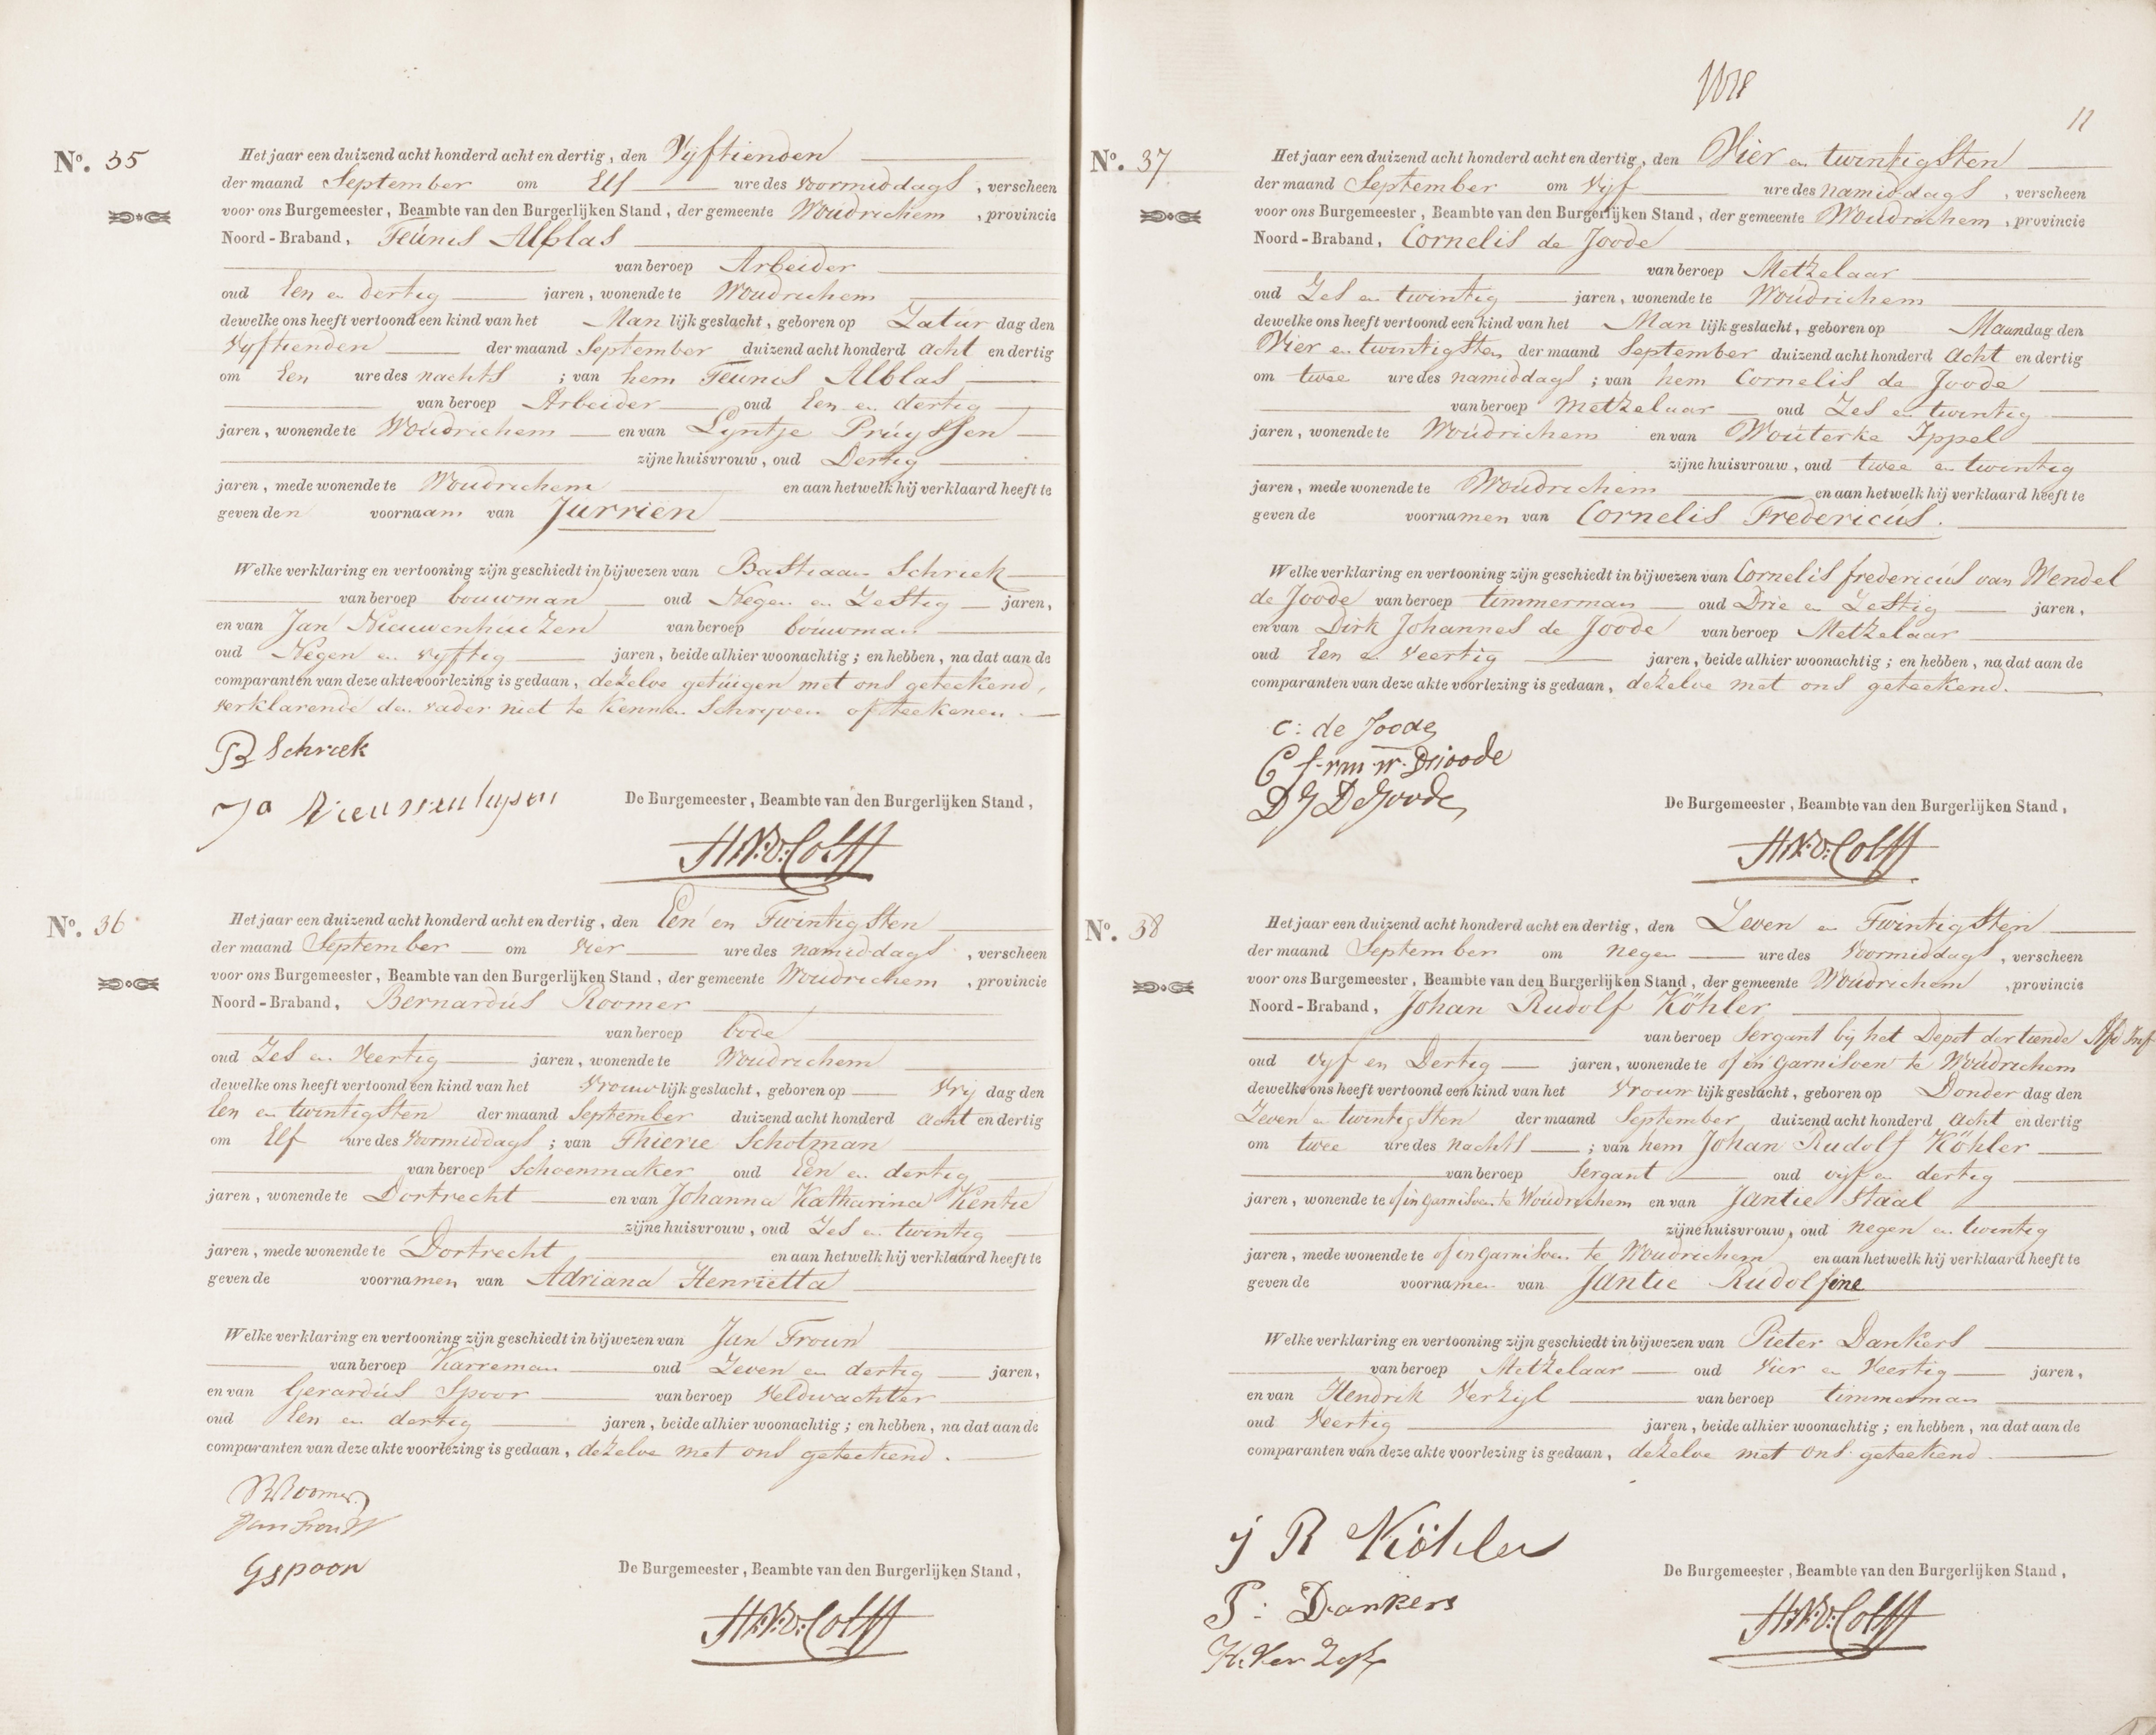 No. 35
Het jaar een duizend acht honderd acht en dertig, den Vyftienden
der maand September om Elf ure des voormiddags, verscheen
voor ons Burgemeester, Beambte van den Burgerlijken Stand, der gemeente Woudrichem, provincie
Noord-Braband, Teunis Alblas
van beroep Arbeider
oud Een en dertig jaren, wonende te Woudrichem
dewelke ons heeft vertoond een kind van het Man lijk geslacht, geboren op Zatur dag den
Vyftienden der maand September duizend acht honderd acht en dertig
om Een ure des nachts; van hem Teunis Alblas
van beroep Arbeider oud Een en dertig
jaren, wonende te Woudrichem en van Lyntje Pruyssen
zijne huisvrouw, oud Dertig
jaren, mede wonende te Woudrichem en aan hetwelk hij verklaard heeft te
geven den voornaam van Jurrien
Welke verklaring en vertooning zijn geschiedt in bijwezen van Bastiaan Schriek
van beroep bouwman oud Negen en Zestig jaren,
en van Jan Nieuwenhuizen van beroep bouwman
oud Negen en vyftig jaren, beide alhier woonachtig; en hebben, na dat aan de
comparanten van deze akte voorlezing is gedaan, dezelve getuigen met ons geteekend,
verklarende den vader niet te kennen Schryven of teekenen.
B Schriek
De Burgemeester, Beambte van den Burgerlijken Stand,
No. 36
Het jaar een duizend acht honderd acht en dertig, den Een en Twintigsten
der maand September om Vier ure des namiddags, verscheen
voor ons Burgemeester, Beambte van den Burgerlijken Stand, der gemeente Woudrichem, provincie
Noord-Braband, Bernardus Roomer
van beroep bode
oud Zes en Veertig jaren, wonende te Woudrichem
dewelke ons heeft vertoond een kind van het Vrouw lijk geslacht, geboren op Vrij dag den
Een en twintigsten der maand September duizend acht honderd acht en dertig
om Elf ure des Voormiddags; van Thierie Schotman
van beroep Schoenmaker oud Een en dertig
jaren, wonende te Dortrecht en van Johanna Katharina Kentie
zijne huisvrouw, oud Zes en twintig
jaren, mede wonende te Dortrecht en aan hetwelk hij verklaard heeft te
geven de voornamen van Adriana Henrietta
Welke verklaring en vertooning zijn geschiedt in bijwezen van Jan Froun
van beroep Karreman oud Zeven en dertig jaren,
en van Gerardus Spoor van beroep Veldwachter
oud Een en dertig jaren, beide alhier woonachtig; en hebben, na dat aan de
comparanten van deze akte voorlezing is gedaan, dezelve met ons geteekend.
BRoomer
G Spoor
De Burgemeester, Beambte van den Burgerlijken Stand,
11
No. 37
Het jaar een duizend acht honderd acht en dertig, den Vier en twintigsten
der maand September om Vijf ure des namiddags, verscheen
voor ons Burgemeester, Beambte van den Burgerlijken Stand, der gemeente Woudrichem, provincie
Noord-Braband, Cornelis de Joode
van beroep Metzelaar
oud Zes en twintig jaren, wonende te Woudrichem
dewelke ons heeft vertoond een kind van het Man lijk geslacht, geboren op Maandag den
Vier en twintigsten der maand September duizend acht honderd acht en dertig
om twee ure des namiddags; van hem Cornelis de Joode
van beroep Metzelaar oud Zes en twintig
jaren, wonende te Woudrichem en van Wouterke Ippel
zijne huisvrouw, oud twee en twintig
jaren, mede wonende te Woudrichem en aan hetwelk hij verklaard heeft te
geven de voornamen van Cornelis Fredericus.
Welke verklaring en vertooning zijn geschiedt in bijwezen van Cornelis fredericus van Wendel
de Joode van beroep timmerman oud Drie en Zestig jaren,
en van Dirk Johannes de Joode van beroep Metzelaar
oud Een en Veertig jaren, beide alhier woonachtig; en hebben, na dat aan de
comparanten van deze akte voorlezing is gedaan, dezelve met ons geteekend.
C: de Joode
D J D Joode
De Burgemeester, Beambte van den Burgerlijken Stand,
No. 38
Het jaar een duizend acht honderd acht en dertig, den Zeven en Twintigsten
der maand September om negen ure des Voormiddags, verscheen
voor ons Burgemeester, Beambte van den Burgerlijken Stand, der gemeente Woudrichem, provincie
Noord-Braband, Johan Rudolf Köhler
van beroep Sergant by het Depot der tiende Afd Inf
oud vyf en Dertig jaren, wonende te of in Garnisoen te Woudrichem
dewelke ons heeft vertoond een kind van het Vrouw lijk geslacht, geboren op Donder dag den
Zeven en twintigsten der maand September duizend acht honderd acht en dertig
om twee ure des nachts; van hem Johan Rudolf Köhler
van beroep Sergant oud vyf en dertig
jaren, wonende te of in Garnisoen te Woudrichem en van Jantie Staal
zijne huisvrouw, oud negen en twintig
jaren, mede wonende te of in Garnisoen te Woudrichem en aan hetwelk hij verklaard heeft te
geven de voornamen van Jantie Rudolfine
Welke verklaring en vertooning zijn geschiedt in bijwezen van Pieter Dankers
van beroep Metzelaar oud Vier en Veertig jaren,
en van Hendrik Verzyl van beroep timmerman
oud Veertig jaren, beide alhier woonachtig; en hebben, na dat aan de
comparanten van deze akte voorlezing is gedaan, dezelve met ons geteekend.
J R Köhler
P: Dankers
De Burgemeester, Beambte van den Burgerlijken Stand,